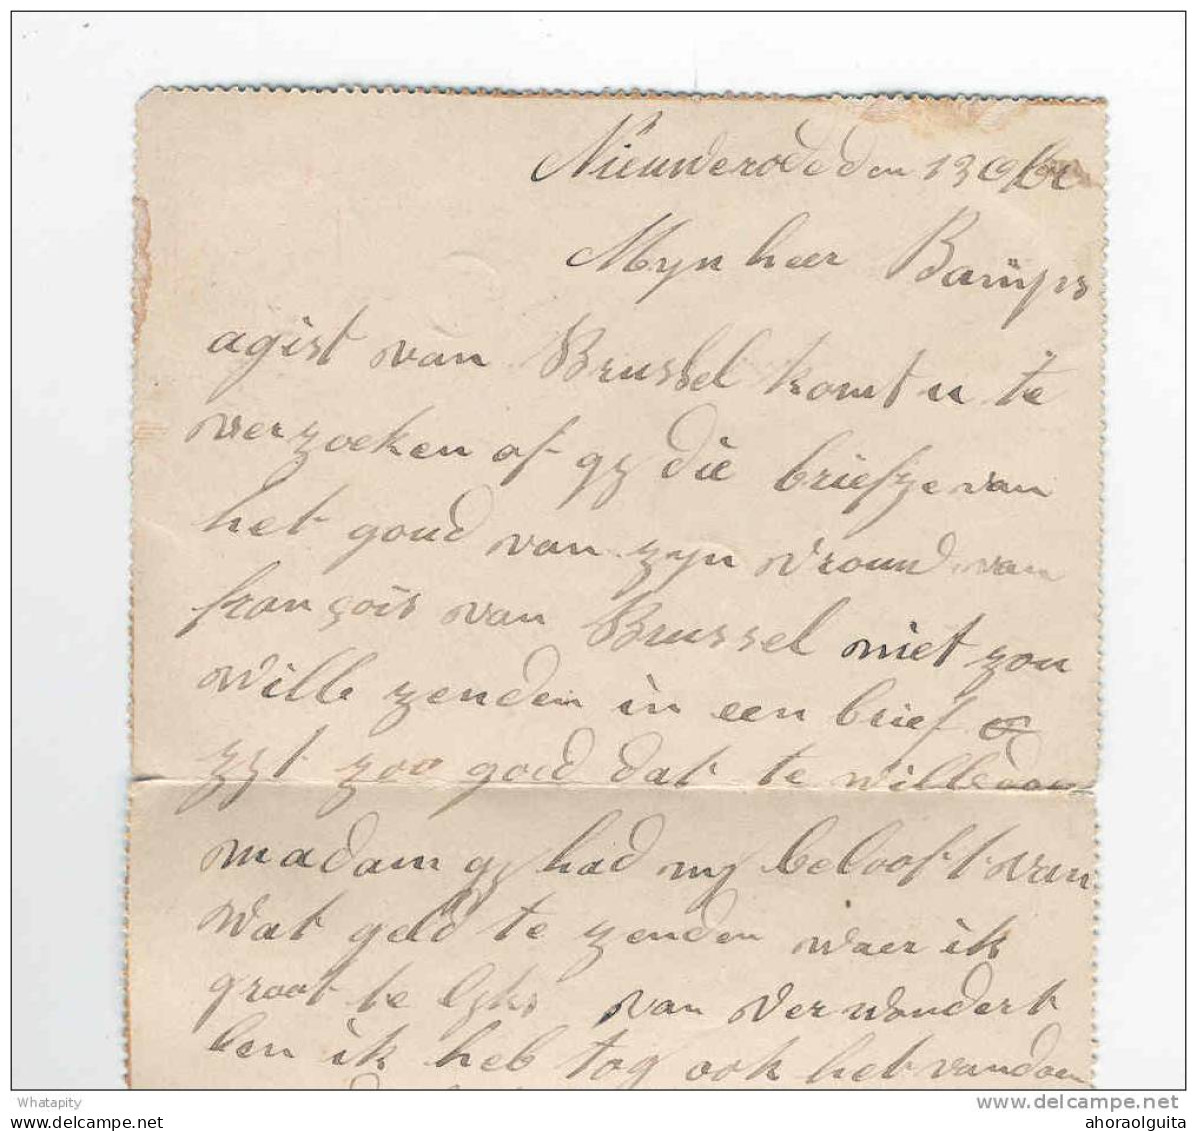 Nieuwerode den 13
Myn heer Bamps
agist van Brussel komt u te
verzoeken of gy die briefze van
het goud van zyn vrouw van
françois van Brussel niet zou
wille zenden in een brief
zyt zoo goed dat te wille doen
madam gy had my belooft van
wat geld te zenden waer ik
groot te lyks van verwondert
ben ik heb tog ook het van doen
Whatapity
delcampe.net
ahoraolguita